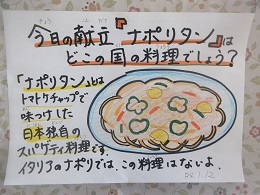 今日の献立『ナポリタン』は
どこの国の料理でしょう?
「ナポリタン」とは
トマトケチャップで
味つけした
日本独自の
スパゲティ料理です。
イタリアのナポリでは、この料理はないよ。